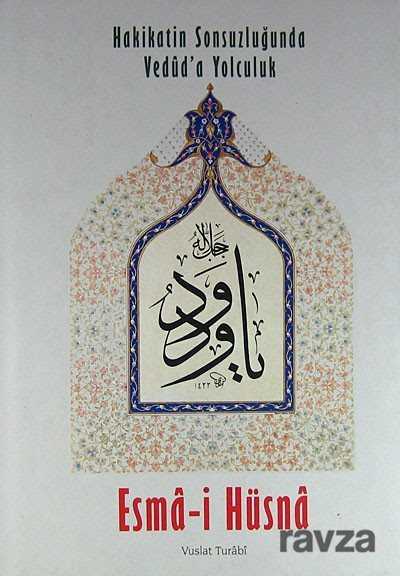 Hakikatin Sonsuzluğunda
Vedûd'a Yolculuk
جل جلاله
يا ودود
١٤٢٢
Esmâ-i Hüsnâ
Vuslat Turâbî
ravza